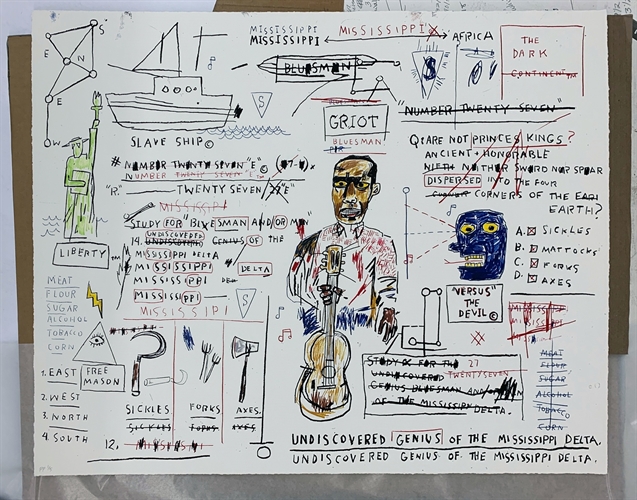 MISSISSIPPI
MISSISSIPPI
MISSISSIPPI
AFRICA
THE
DARK
CONTINENT
S
E
N
E
W
BLUESMEN
S
S
"NUMBER TWENTY SEVEN"
GRIOT
BLUESMAN
SLAVE SHIP©
# NUMBER TWENTY SEVEN "E"© (27-4)
NUMBER TWENTY SEVEN "E"
"R." TWENTY SEVEN "E"
MISSISSIPI
STUDY FOR "BLUESMAN AND/OR MEN"
UNDISCOVERED
14. UNDISCOVERED GENIUS OF THE
MISSISSIPPI DELTA
MISSISSIPPI DELTA
MISSISSIPPI
MISSISSIPPI
S
MISSISSIPI
Q: ARE NOT PRINCES KINGS?
ANCIENT + HONORABLE
WITH NEITHER SWORD NOR SPEAR
DISPERSED INTO THE FOUR
CORNERS OF THE EARTH
EARTH?
A. SICKLES
B. MATTOCKS
C. FORKS
D. AXES
"VERSUS"
THE
DEVIL©
LIBERTY
MEAT
FLOUR
SUGAR
ALCOHOL
TOBACCO
CORN
1. EAST
2. WEST
3. NORTH
4. SOUTH
FREE
MASON
SICKLES FORKS AXES.
SICKLES FORKS AXES
12. MISSISSIPI
STUDY FOR THE 27
UNDISCOVERED TWENTYSEVEN
GENIUS BLUESMAN AND/OR MEN
OF THE MISSISSIPPI DELTA.
MISSISSIPI
MISSISSIPI
MEAT
FLOUR
SUGAR
ALCOHOL
TOBACCO
CORN
UNDISCOVERED GENIUS OF THE MISSISSIPPI DELTA.
UNDISCOVERED GENIUS OF THE MISSISSIPPI DELTA.